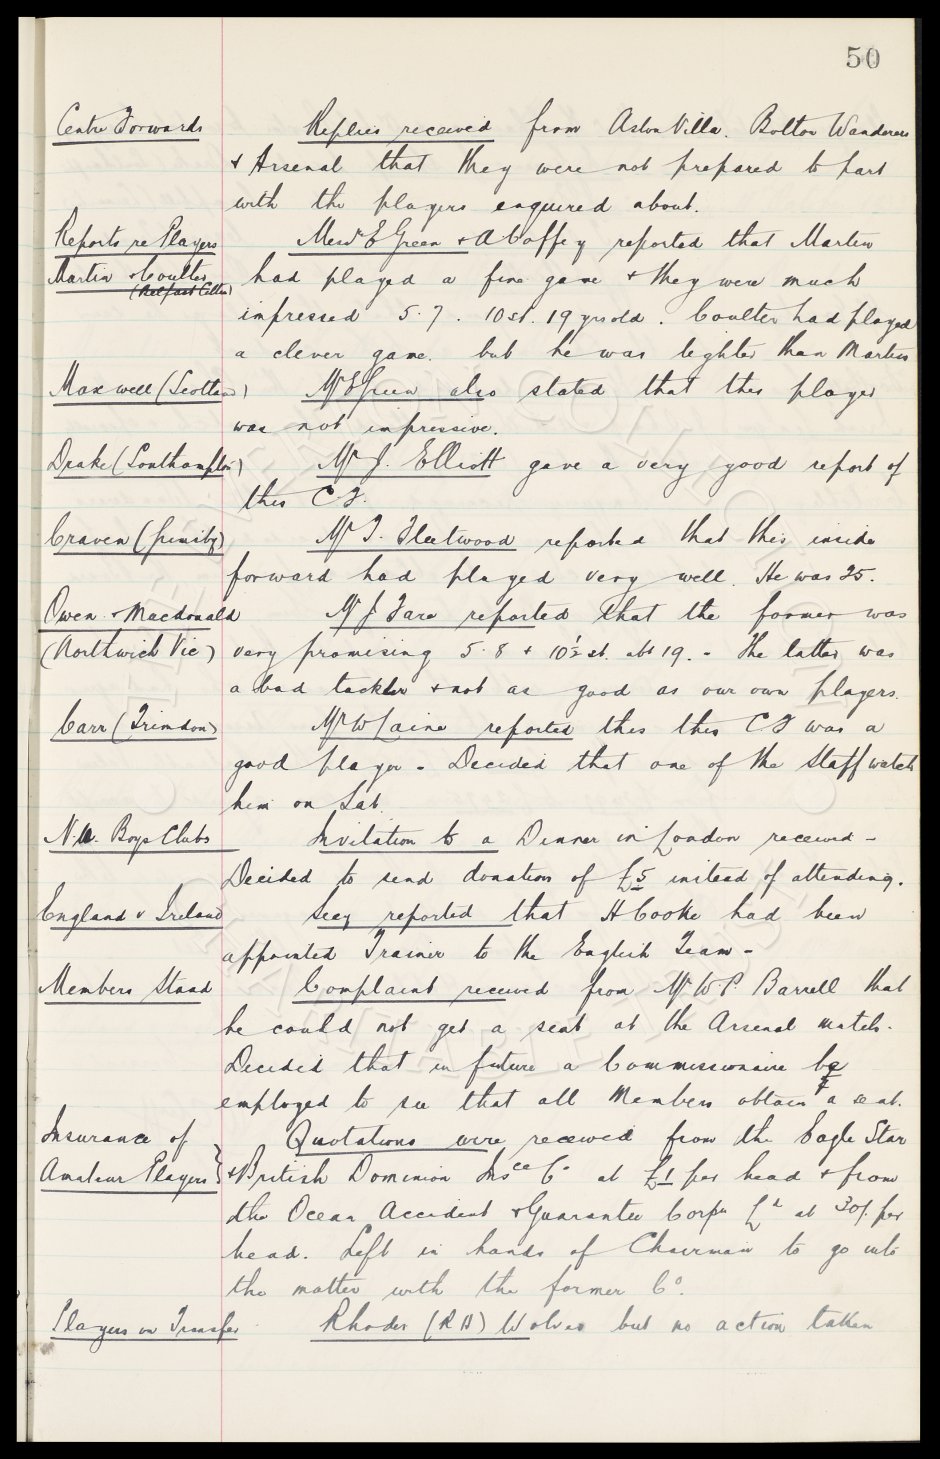 50
Centre Forwards Replies received from Aston Villa. Bolton Wanderers
& Arsenal that they were not prepared to part
with the players enquired about.
Reports re Players Messrs E Green & A Coffey reported that Martin
Martin & Coulter had played a fine game & they were much
(Belfast Celtic) impressed 5.7. 10st. 19 yrs old. Coulter had played
a clever game. but he was lighter than Martin
Maxwell (Scotland) Mr E Green also stated that this player
was not impressive.
Drake (Southampton) Mr J. Elliott gave a very good report of
this C F.
Craven (Grimsby) Mr T. Fleetwood reported that this inside
forward had played very well. He was 25.
Owen & Macdonald Mr J Fare reported that the former was
(Northwich Vic) very promising 5.8 & 10½ st. abt 19. - The latter was
a bad tackler & not as good as our own players.
Carr (Trimdon) Mr W Caine reported this this C F was a
good player - Decided that one of the Staff watch
him on Sat.
N.A. Boys Clubs Invitation to a Dinner in London received -
Decided to send donation of £5 instead of attending.
England v Ireland Secy reported that H Cooke had been
appointed Trainer to the English Team -
Members Stand Complaint received from Mr W.P. Barrell that
he could not get a seat at the Arsenal match.
Decided that in future a Commissionaire be
employed to see that all Members obtain a seat.
Insurance of Quotations were received from the Eagle Star
Amateur Players} & British Dominion Insce Co at £1 per head & from
the Ocean Accident & Guarantee Corpn Ld at 30/. per
head. Left in hands of Chairman to go into
the matter with the former Co.
Players on Transfer Rhodes (R H) Wolves but no action taken